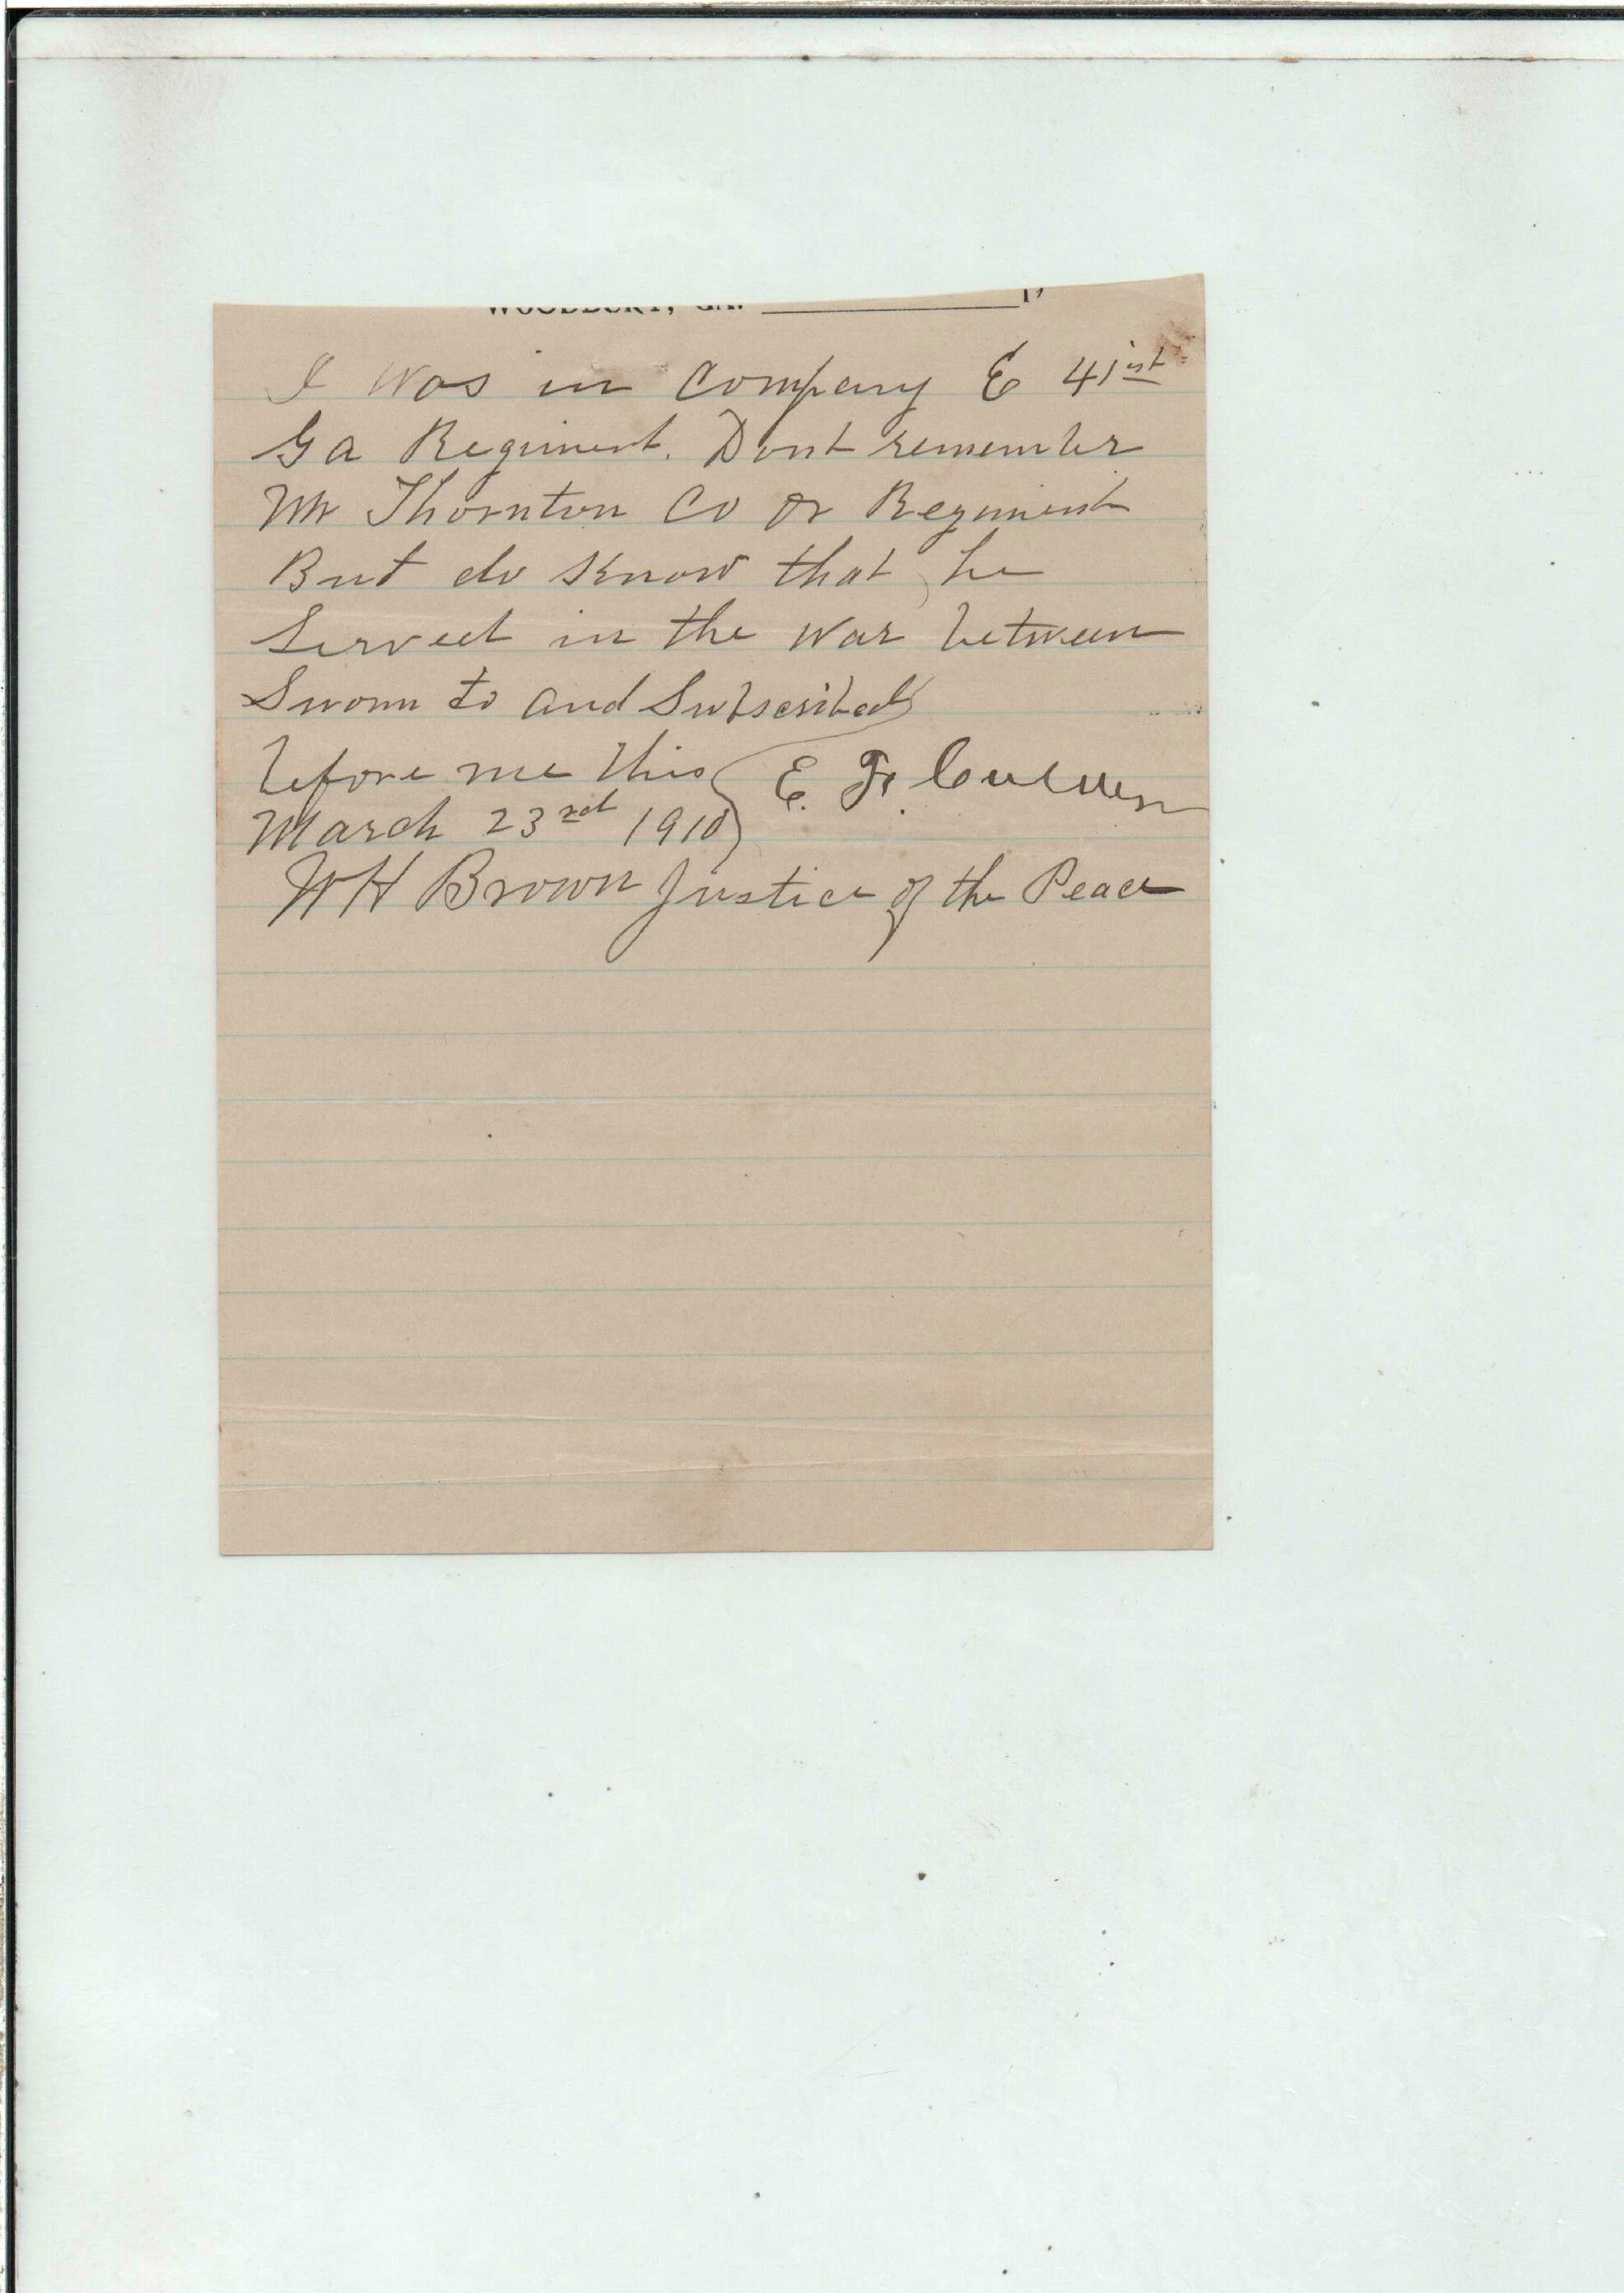 WOODBURY, GA. 19
I was in Company E 41st
Ga Regiment. Dont remember
Mr Thornton Co or Regiment
But do know that he
Served in the war between
Sworn to and Subscribed
before me this E. F.
March 23rd 1910
W H Brown Justice of the Peace